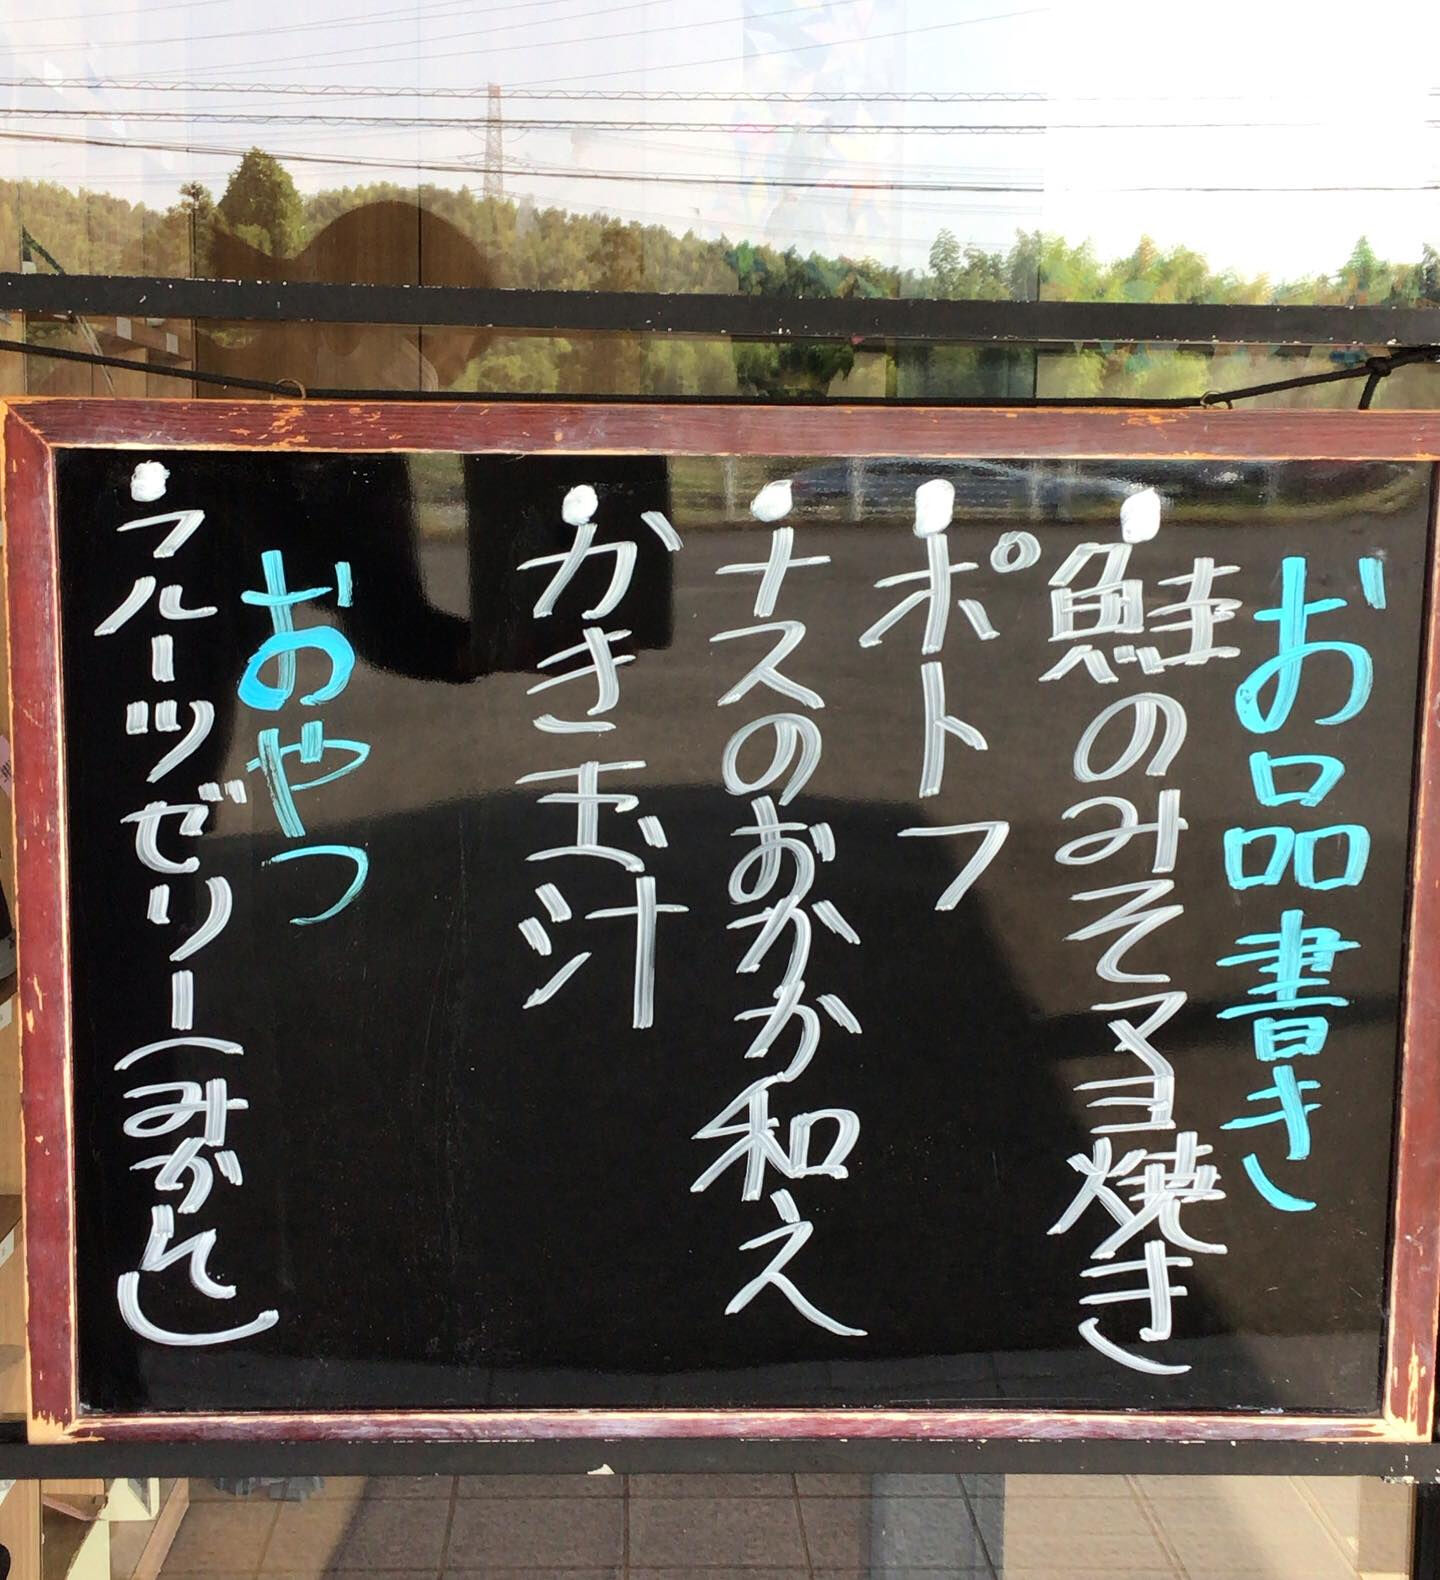 お品書き
鮭のみそマヨ焼き
ポトフ
ナスのおかか和え
かき玉汁
おやつ
フルーツゼリー(みかん)